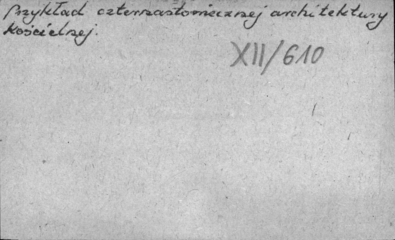 Przykład czternastowiecznej architektury
kościelnej.
XII/610